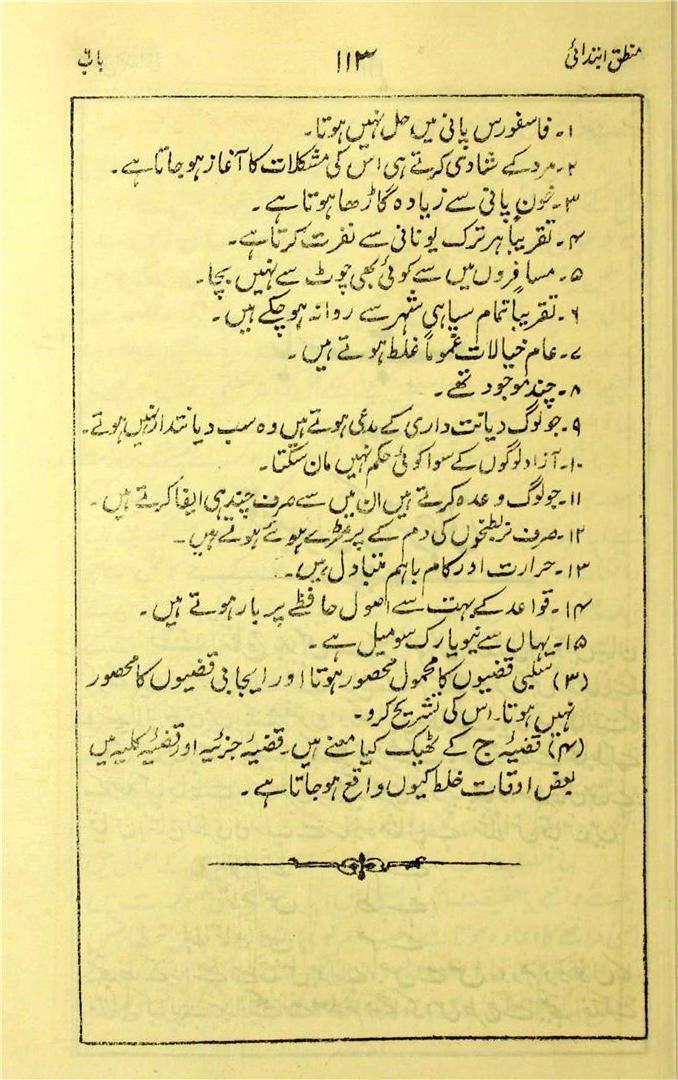 منطق ابتدائی
۱۱۳
باب ۶
۱۔ فاسفورس پانی میں حل نہیں ہوتا۔
۲۔ مرد کے شادی کرتے ہی اس کی مشکلات کا آغاز ہوجاتا ہے۔
۳۔ خون پانی سے زیادہ گاڑھا ہوتا ہے۔
۴۔ تقریباً ہر ترک یونانی سے نفرت کرتا ہے۔
۵۔ مسافروں میں سے کوئی بھی چوٹ سے نہیں بچا۔
۶۔ تقریباً تمام سپاہی شہر سے روانہ ہوچکے ہیں۔
۷۔ عام خیالات عموماً غلط ہوتے ہیں۔
۸۔ چند موجود تھے۔
۹۔ جو لوگ دیانت داری کے مدعی ہوتے ہیں وہ سب دیانتدار نہیں ہوتے۔
۱۰۔ آزاد لوگوں کے سوا کوئی حکم نہیں مان سکتا۔
۱۱۔ جو لوگ وعدہ کرتے ہیں ان میں سے صرف چند ہی ایفا کرتے ہیں۔
۱۲۔ صرف نر بطخوں کی دم کے پر مڑے ہوئے ہوتے ہیں۔
۱۳۔ حرارت اور کام باہم متبادل ہیں۔
۱۴۔ قواعد کے بہت سے اصول حافظے پر بار ہوتے ہیں۔
۱۵۔ یہاں سے نیویارک سو میل ہے۔
(۳) سلبی قضیوں کا محمول محصور ہوتا اور ایجابی قضیوں کا محصور
نہیں ہوتا۔ اس کی تشریح کرو۔
(۴) قضیۂ ج کے ٹھیک کیا معنے ہیں۔ قضیۂ جزئیہ اور قضیۂ کلیہ میں
بعض اوقات خلط کیوں واقع ہوجاتا ہے۔